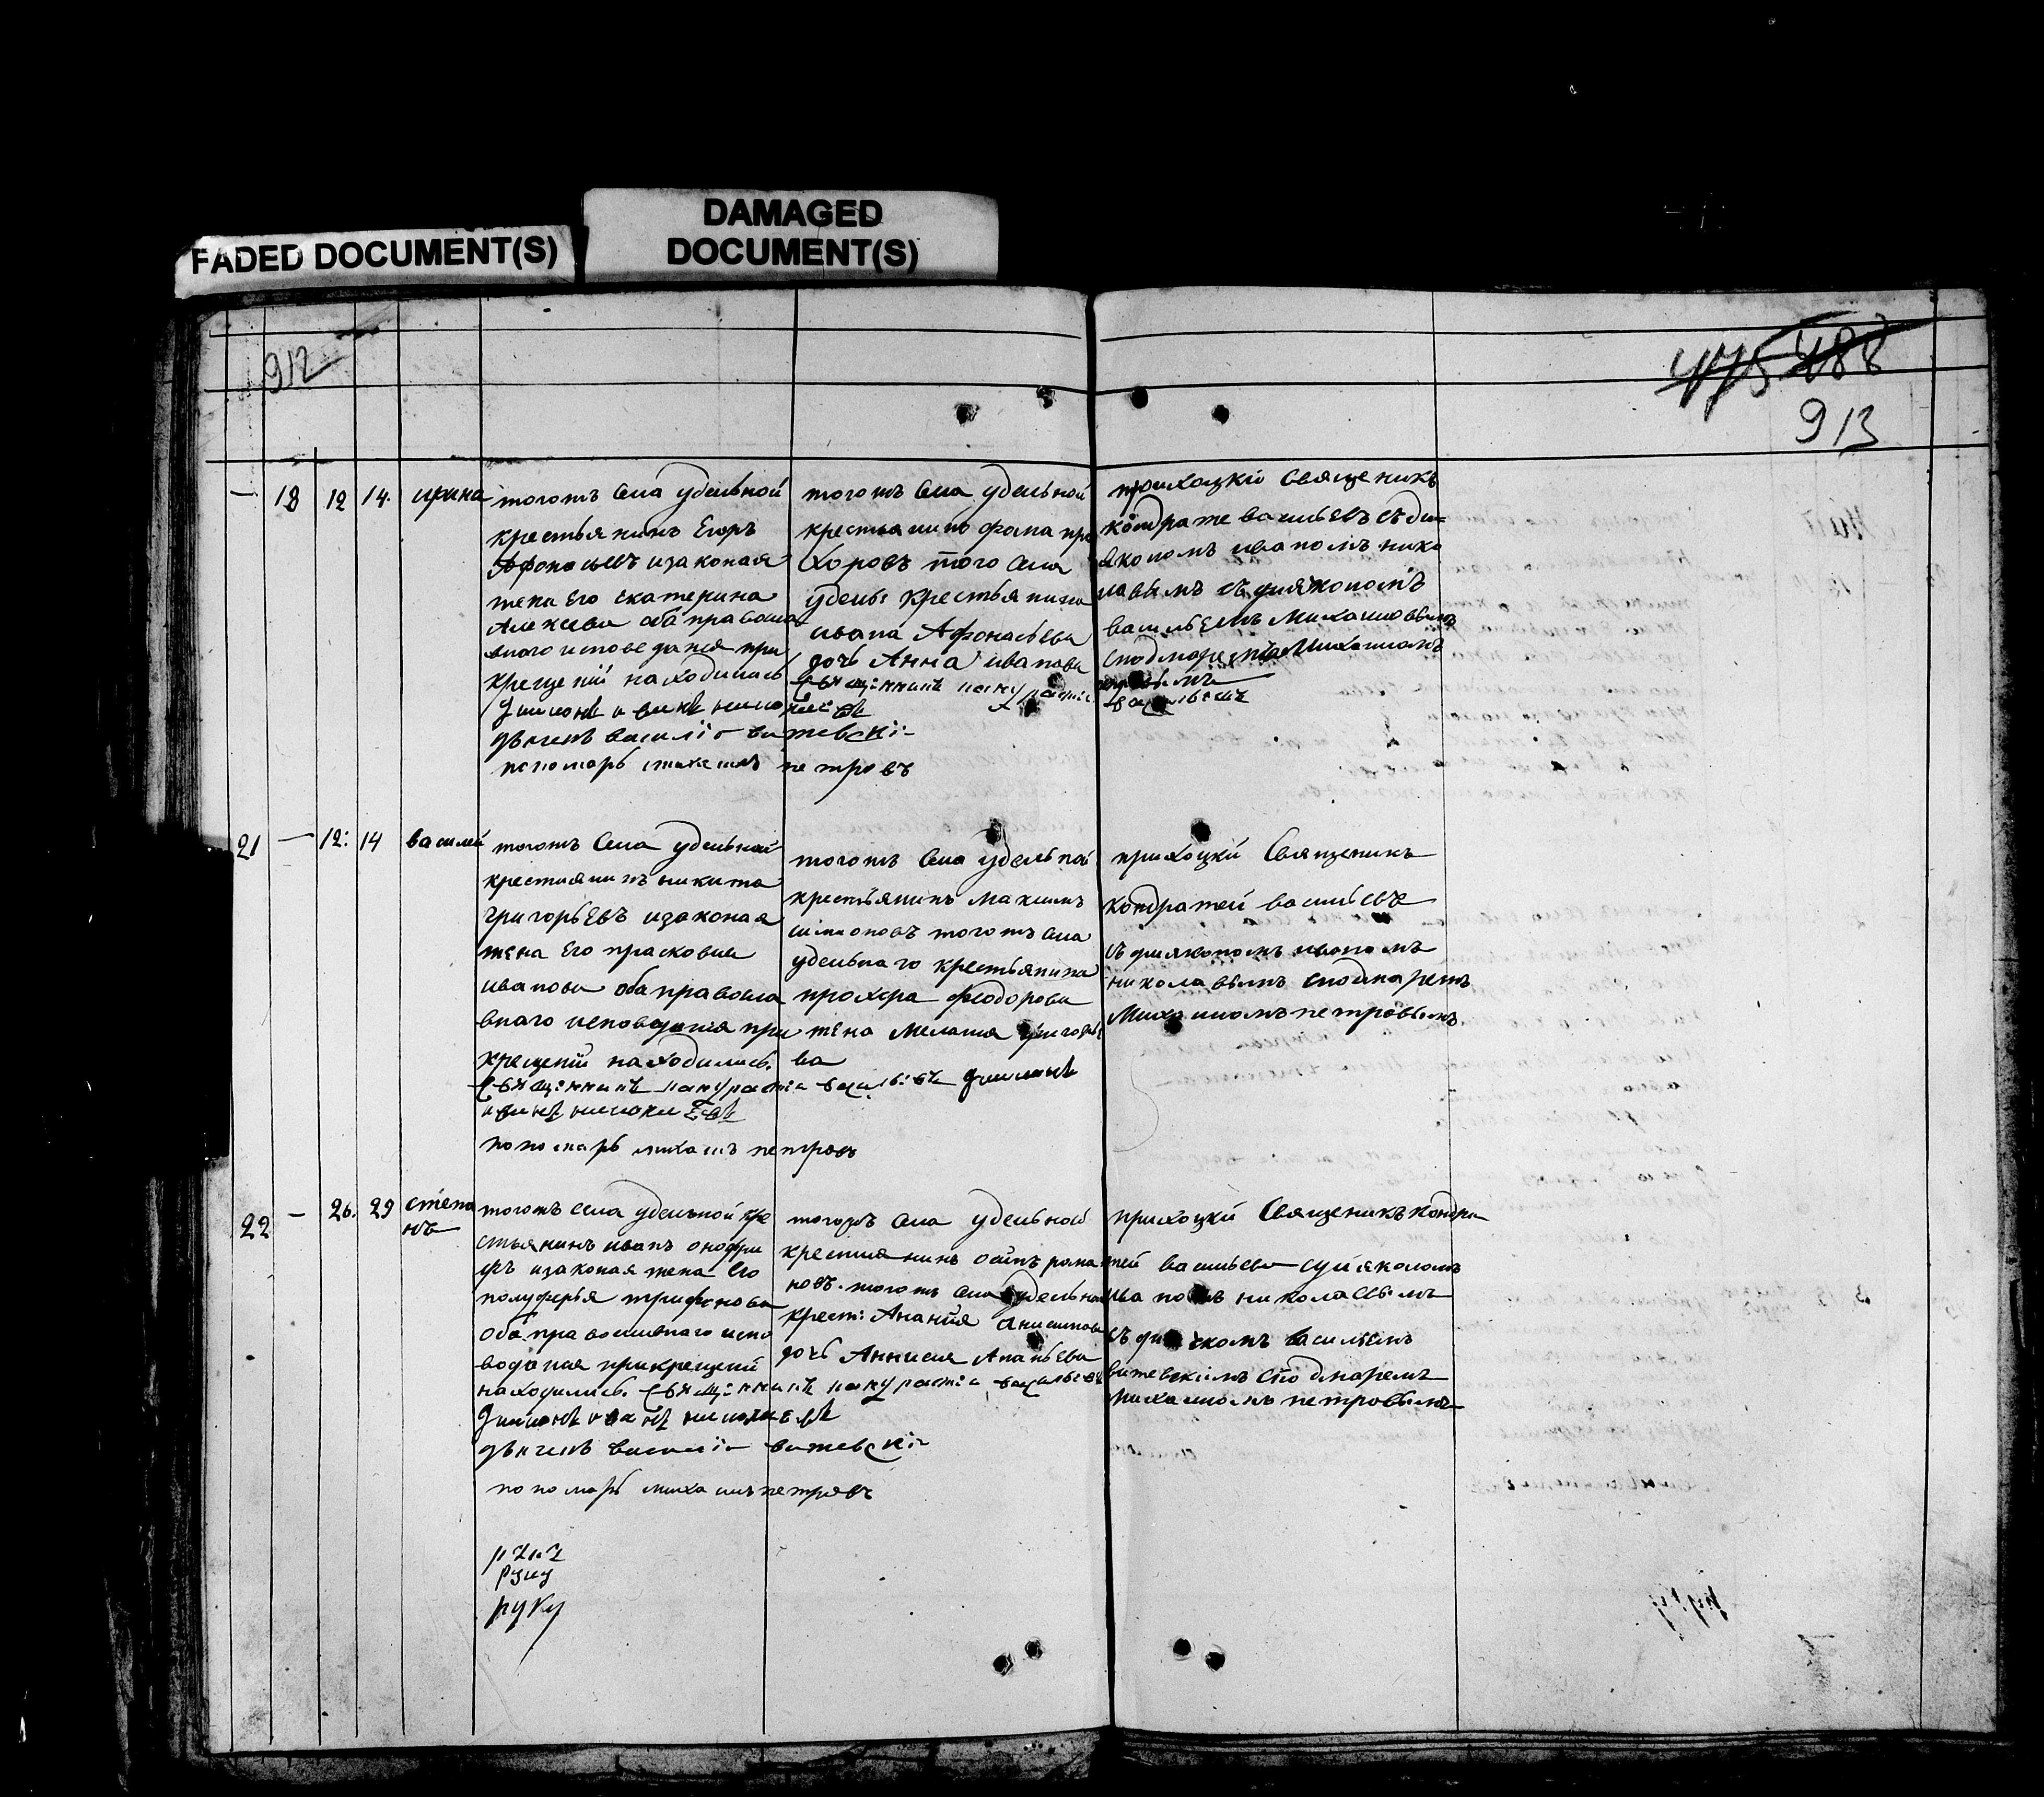 FADED DOCUMENT(S)
DAMAGED
DOCUMENT(S)
912
475 488
913
— 18 12 14. ирина
тогожъ села удельной
крестьянинъ Егоръ
Афонасьевъ изаконая
жена Его екатерина
Алексеева оба правосла
внаго исповеданея при
крещенïи находилась
Димонъ иванъ николаевъ
дьячекъ василïй витевскïй
пономарь михаилъ петровъ
тогожъ села удельной
крестьянинъ фома про
хоровъ того села
удельн: крестьянина
ивана Афонасьева
дочь Анна иванова
священникъ кондратей васильевъ
приходцкiй Священикъ
кондратей васильевъ съ ди=
якономъ иваномъ нико
лавымъ съ диякономъ
васильемъ Михаиловымъ
спономаремъ Михаиломъ
петровымъ
21 — 12: 14 василей
тогожъ села удельной
крестиянинъ никита
григорьЕвъ изаконая
жена Его прасковия
иванова оба правосла
внаго исповедания при
крещенïи находились.
священникъ кондратей васильевъ Димонъ
иванъ николаЕвъ
пономарь михаилъ петровъ
тогожъ села удельной
крестьянинъ максимъ
симионовъ тогожъ села
удельнаго крестьянина
прохора феодорова
жена мелания григорье
ва
приходцкiй Священикъ
кондратей васильевъ
съ диякономъ иваномъ
николавымъ спономаремъ
Михаиломъ петровымъ
22 — 26. 29 степа
нъ
тогожъ села удельной кре
стьянинъ иванъ онофри
евъ изаконая жена Его
полуферья трифонова
оба православнаго испо
ведания прикрещенïи
находились. священникъ кондратей васильевъ
Димонъ иванъ николаЕвъ
дьячекъ василïй витевскïй
пономарь михаилъ петровъ
тогожъ села удельной
крестиянинъ осипъ рома
новъ. тогожъ села удельна
крест: Анания Анисимова
дочь Аннисия АнаньЕва
приходцкiй Священикъ кондра
тей васильевъ судияконом
иваномъ николаевымъ
съ дьячкомъ васильемъ
витевскимъ спономаремъ
Михаиломъ петровымъ
руку
руку